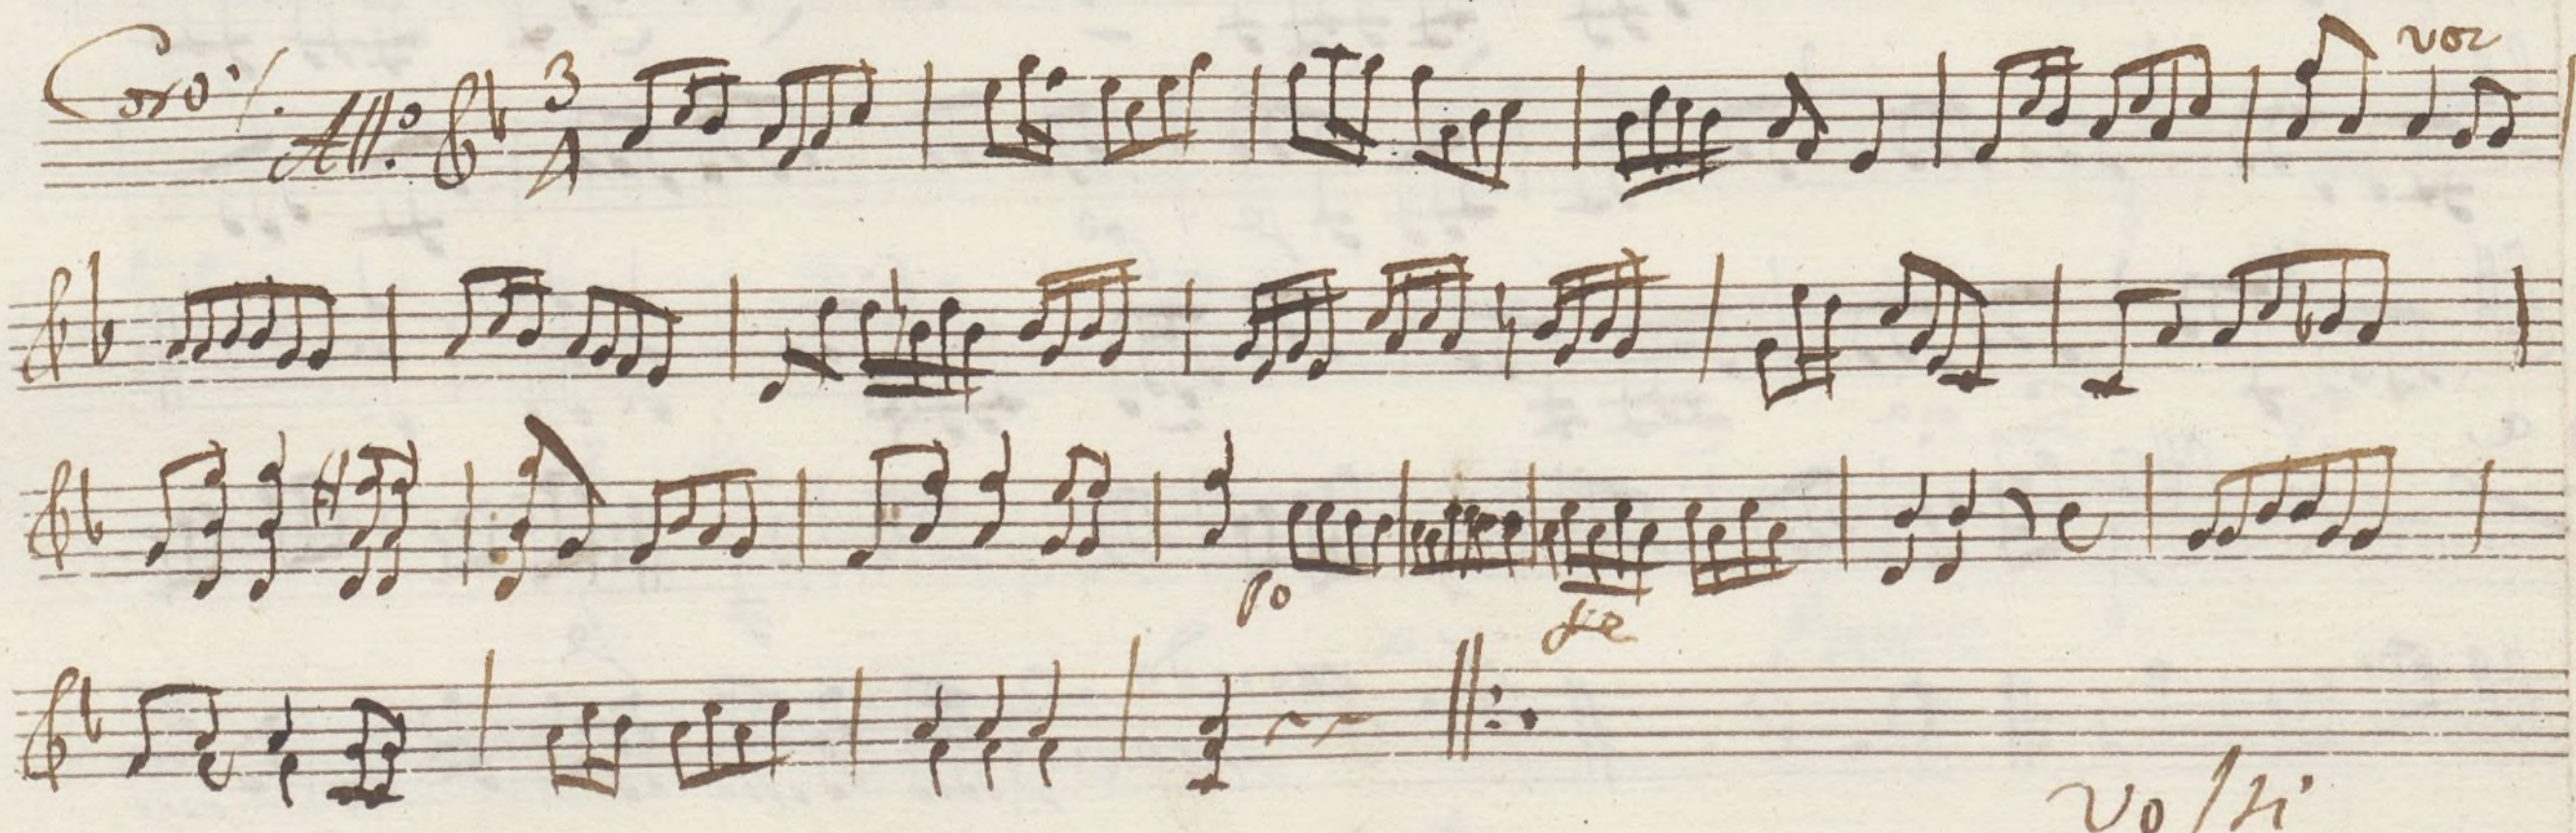 Coro·/.
All.º 3 4
vor
po
fe
volti